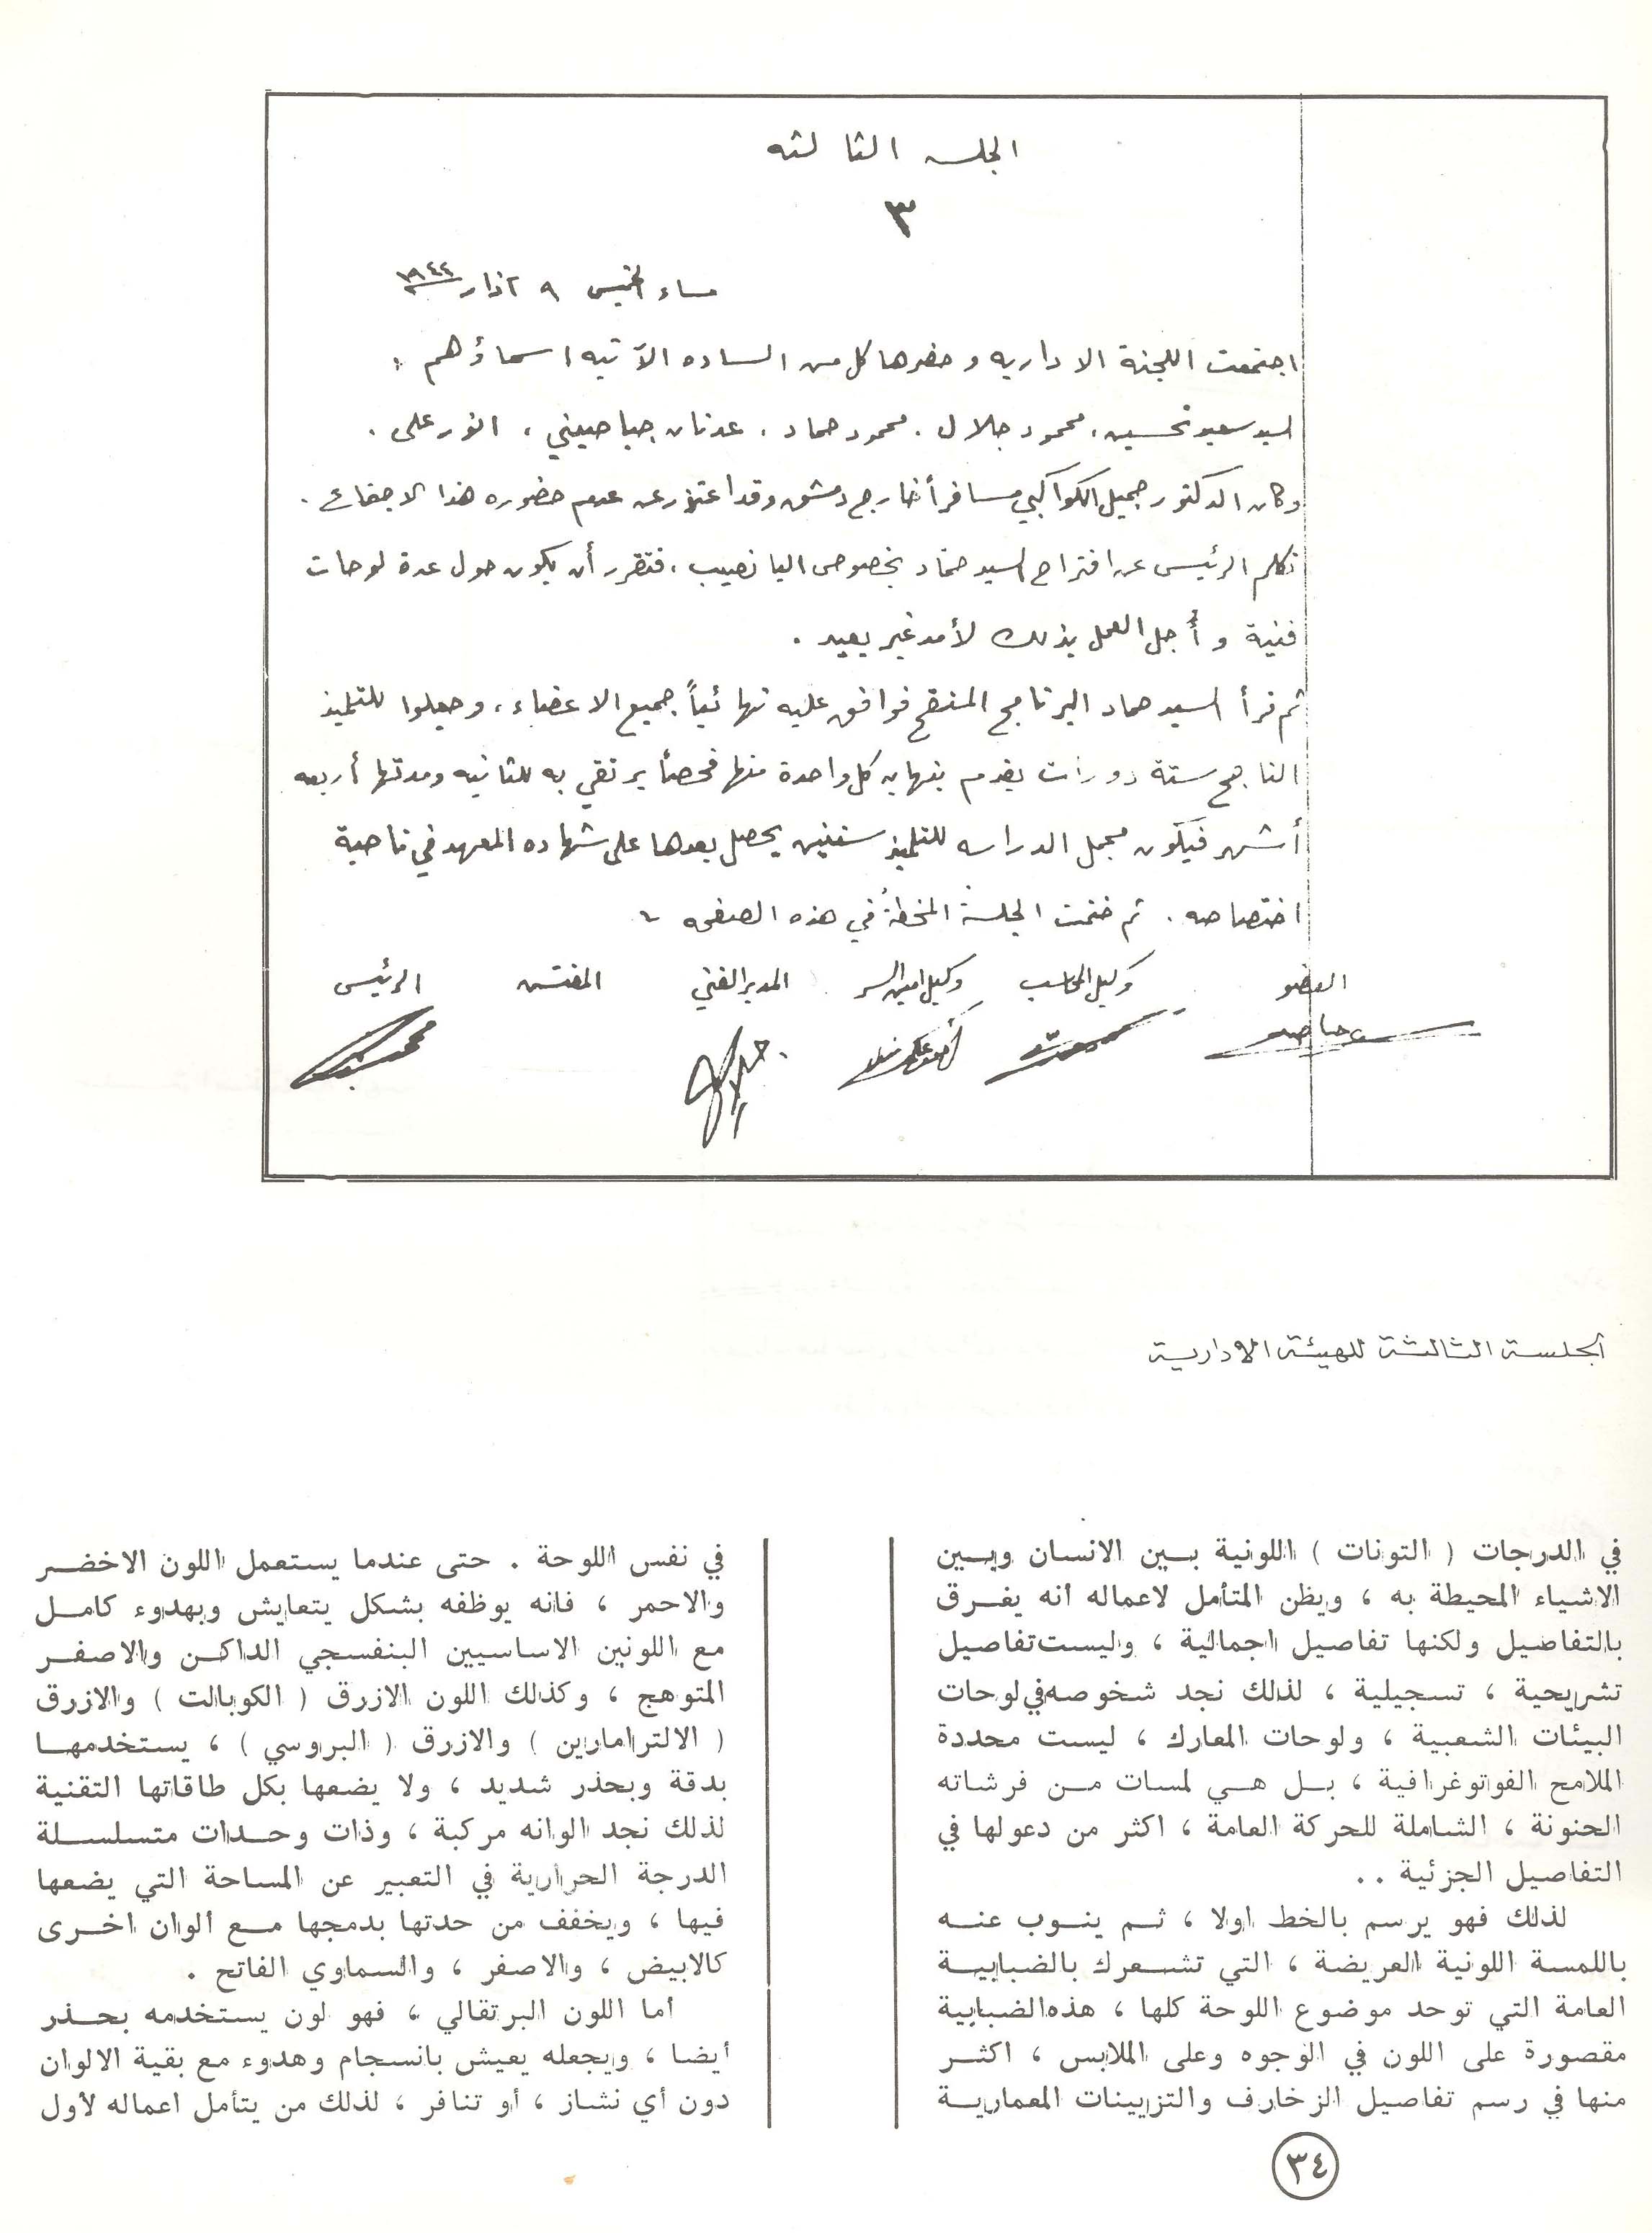 الجلسه الثالثه
٣
مساء الخميس ٩ آذار ١٩٤٤
اجتمعت اللجنة الاداريه وحضرها كل من الساده الآتيه اسماؤهم :
السيد سعيد تحسين ، محمود جلال . محمود حماد . عدنان جباصيني ، انور علي .
وكان الدكتور جميل الكواكبي مسافراً خارج دمشق وقد اعتذر عن عدم حضوره هذا الاجتماع .
تكلم الرئيس عن اقتراح السيد حماد بخصوص اليانصيب ، فتقرر أن يكون حول عدة لوحات
فنية وأُجل العمل بذلك لأمد غير بعيد .
ثم قرأ السيد حماد البرنامج المنقح فوافق عليه نهائياً جميع الاعضاء ، وجعلوا للتلميذ
الناجح ستة دورات يقدم بنهايه كل واحدة منها فحصاً يرتقي به للثانيه ومدتها أربعه
أشهر فيكون مجمل الدراسه للتلميذ سنتين يحصل بعدها على شهاده المعهد في ناحية
اختصاصه . ثم ختمت الجلسة المخطة في هذه الصفحه
العضو وكيل المحاسب وكيل امين السر المدير الفني المفتش الرئيس
الجلسة الثالثة للهيئة الادارية
في الدرجات ( التونات ) اللونية بين الانسان وبين
الاشياء المحيطة به ، ويظن المتأمل لاعماله انه يغرق
بالتفاصيل ولكنها تفاصيل اجمالية ، وليست تفاصيل
تشريحية ، تسجيلية ، لذلك نجد شخوصه في لوحات
البيئات الشعبية ، ولوحات المعارك ، ليست محددة
الملامح الفوتوغرافية ، بل هي لمسات من فرشاته
الحنونة ، الشاملة للحركة العامة ، اكثر من دعولها في
التفاصيل الجزئية . .
لذلك فهو يرسم بالخط اولا ، ثم ينوب عنه
باللمسة اللونية العريضة ، التي تشعرك بالضبابية
العامة التي توحد موضوع اللوحة كلها ، هذه الضبابية
مقصورة على اللون في الوجوه وعلى الملابس ، اكثر
منها في رسم تفاصيل الزخارف والتزيينات المعمارية
في نفس اللوحة . حتى عندما يستعمل اللون الاخضر
والاحمر ، فانه يوظفه بشكل يتعايش وبهدوء كامل
مع اللونين الاساسيين البنفسجي الداكن والاصفر
المتوهج ، وكذلك اللون الازرق ( الكوبالت ) والازرق
( الالترامارين ) والازرق ( البروسي ) ، يستخدمها
بدقة وبحذر شديد ، ولا يضعها بكل طاقاتها التقنية
لذلك نجد الوانه مركبة ، وذات وحدات متسلسلة
الدرجة الحرارية في التعبير عن المساحة التي يضعها
فيها ، ويخفف من حدتها بدمجها مع الوان اخرى
كالابيض ، والاصفر ، والسماوي الفاتح .
أما اللون البرتقالي ، فهو لون يستخدمه بحذر
أيضا ، ويجعله يعيش بانسجام وهدوء مع بقية الالوان
دون أي نشاز ، أو تنافر ، لذلك من يتأمل اعماله لأول
٣٤